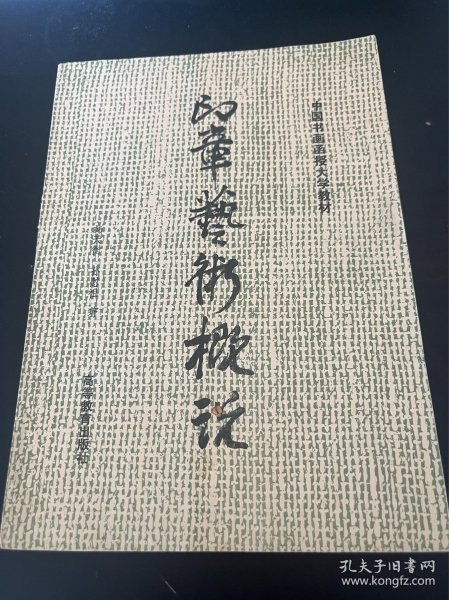 中国书画函授大学教材
印章艺术概说
著
高等教育出版社
孔夫子旧书网
www.kongfz.com